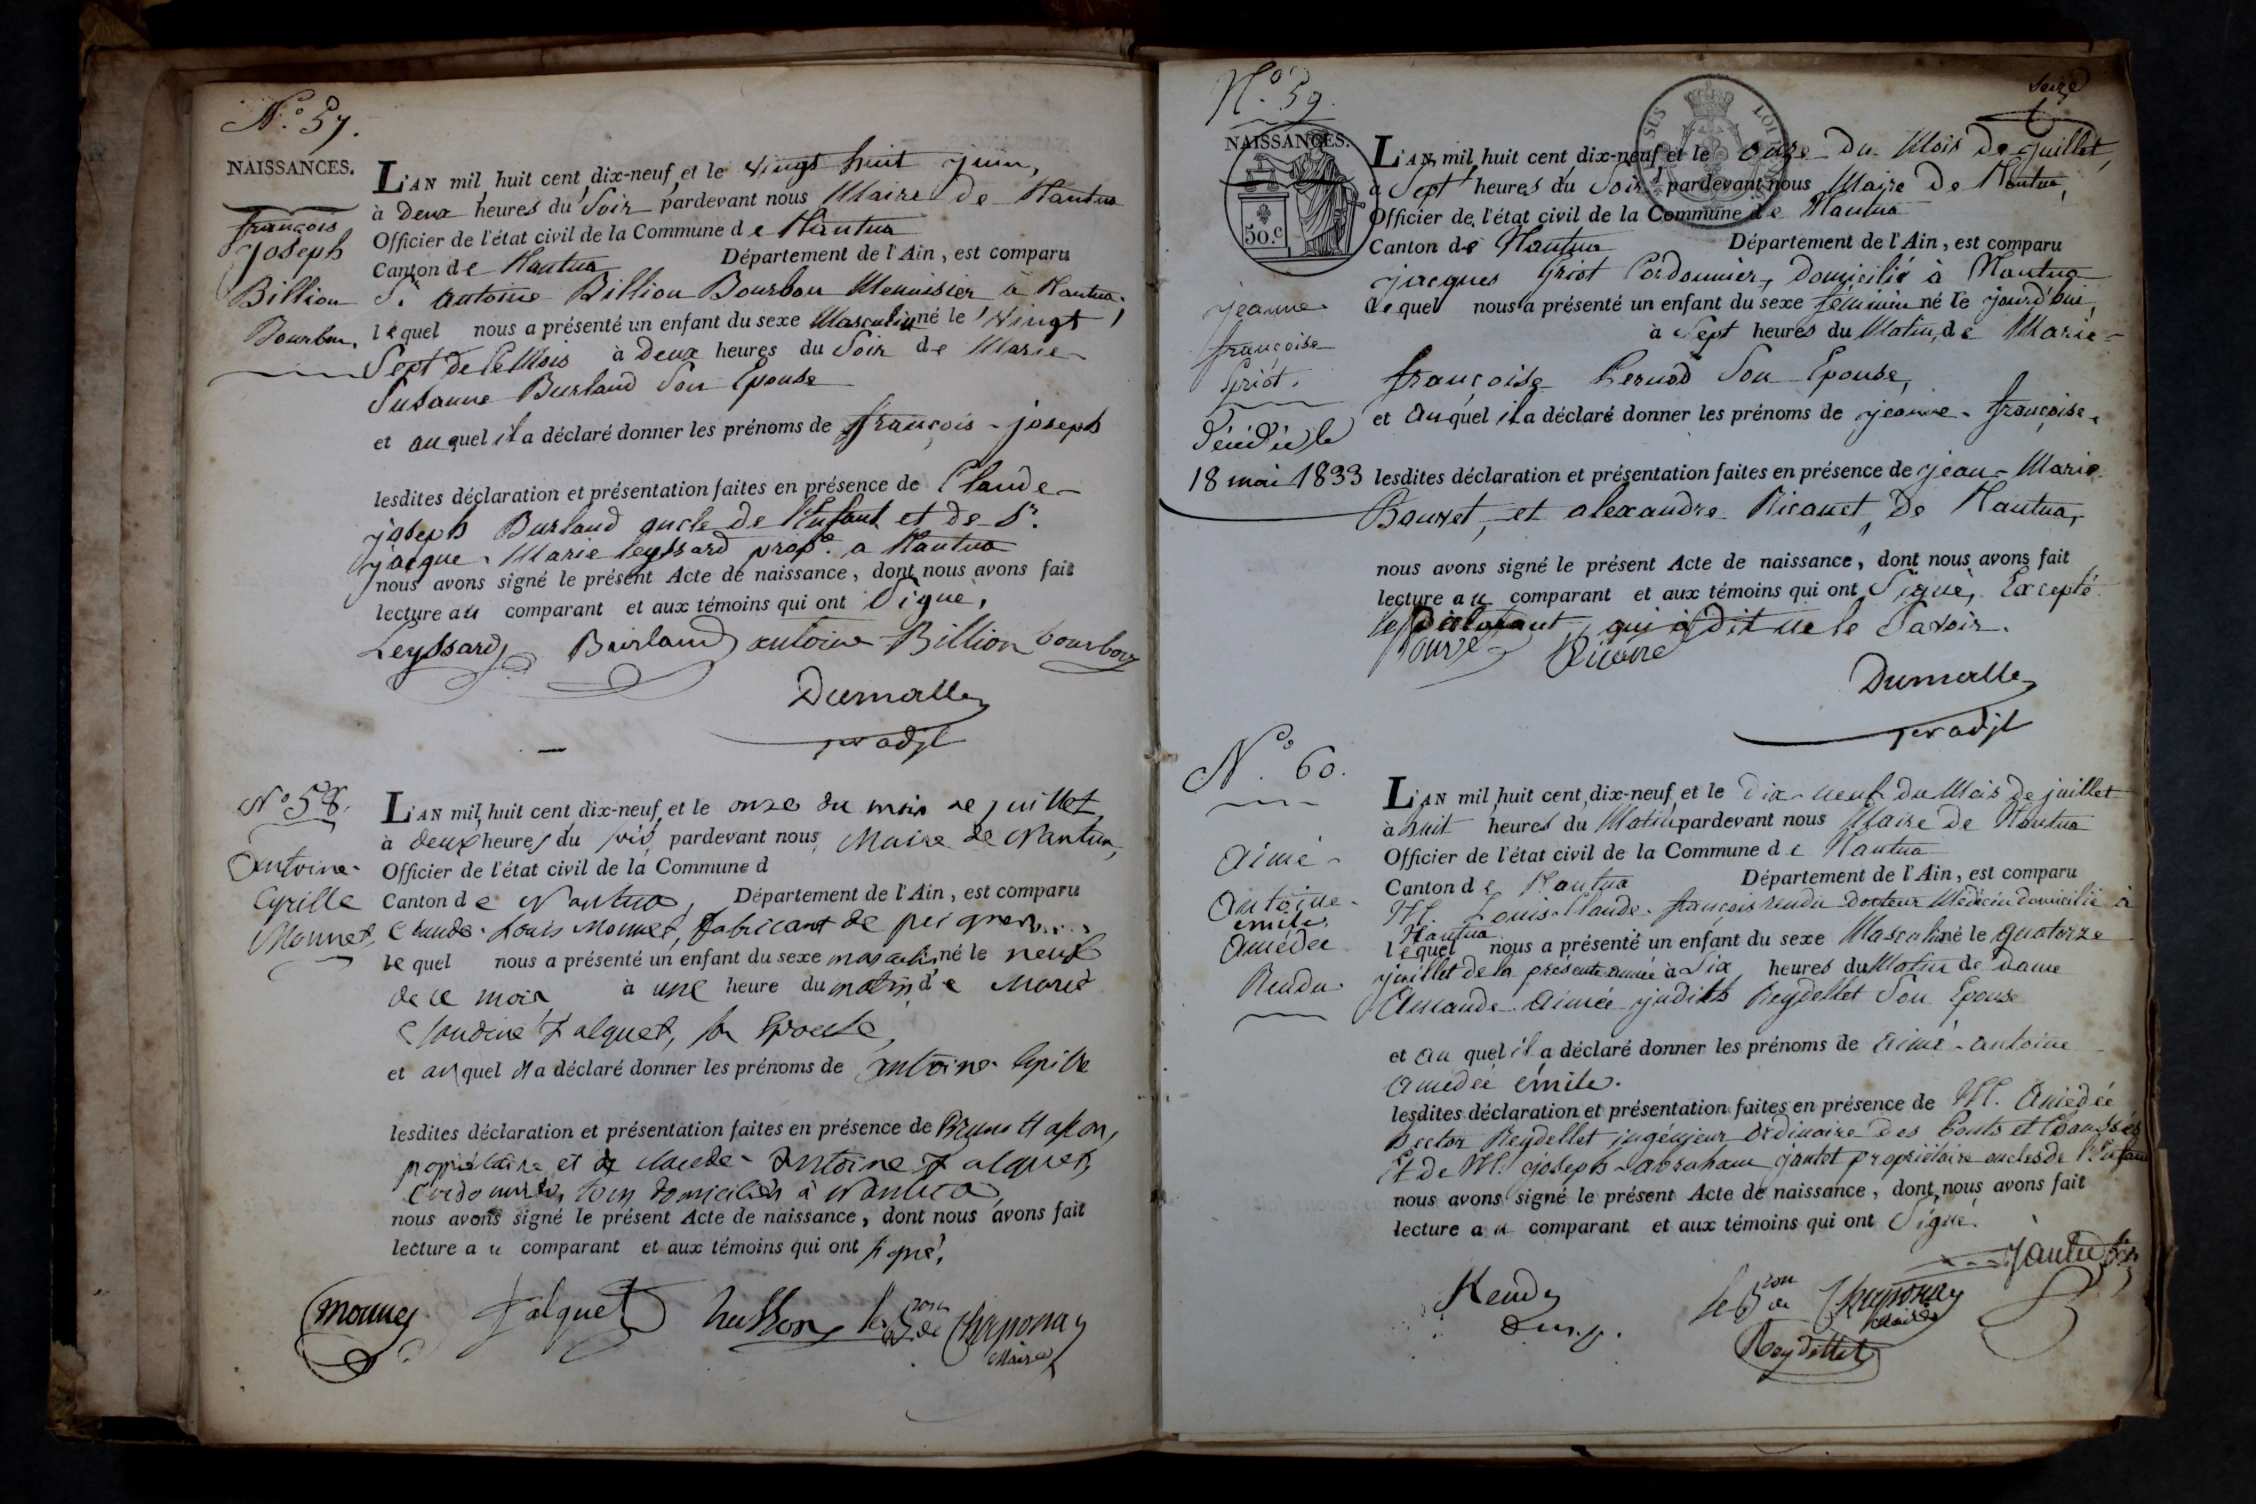 N.° 57.
NAISSANCES.
françois
Joseph
Billion
Bourbon.
L'AN mil huit cent dix-neuf et le vingt huit juin,
à Deux heures du Soir pardevant nous Maire de Nantua
Officier de l'état civil de la Commune de Nantua
Canton de Nantua Département de l'Ain, est comparu
Sr. antoine Billion Bourbon Menuisier à Nantua,
lequel nous a présenté un enfant du sexe Masculin né le Vingt
Sept de Ce Mois à Deux heures du Soir de Marie
Susanne Burland Son Epouse
et auquel il a déclaré donner les prénoms de françois - joseph
lesdites déclaration et présentation faites en présence de Claude
joseph Burland oncle de l'Enfant et de Sr.
jacque - Marie leyssard prop.e a Nantua
nous avons signé le présent Acte de naissance, dont nous avons fait
lecture au comparant et aux témoins qui ont Signé,
Leyssard Burland antoine Billion bourbon
Dumolle
1er adjt
N° 58.
Antoine
Cyrille
Monnet
L'AN mil huit cent dix-neuf et le onze du mois de juillet
à deux heures du soir pardevant nous Maire de Nantua,
Officier de l'état civil de la Commune d
Canton de Nantua, Département de l'Ain, est comparu
Claude Louis Monnet, fabricant de peignes
le quel nous a présenté un enfant du sexe masculin né le neuf
de ce mois à une heure du matin de Marie
Claudine falquet, son Epouse,
et auquel il a déclaré donner les prénoms de antoine Cyrille
lesdites déclaration et présentation faites en présence de
propriétaire et de claude - antoine falquet,
Cordonnier, tous domiciliés à Nantua,
nous avons signé le présent Acte de naissance, dont nous avons fait
lecture au comparant et aux témoins qui ont signé.
Monnet falquet husson le Bon de Chaponay
Maire
N.° 59.
NAISSANCES.
50.c
SIS LOI
Seize
jeanne
françoise
Griot.
18 mai 1833
L'AN mil huit cent dix-neuf et le onze du Mois de juillet,
à Sept heures du Soir pardevant nous Maire de Nantua,
Officier de l'état civil de la Commune de Nantua
Canton de Nantua Département de l'Ain, est comparu
jacques Griot Cordonnier, domicilié à Nantua
lequel nous a présenté un enfant du sexe féminin né le jourd'hui,
à Sept heures du Matin, de Marie
françoise Pernod Son Epouse,
et Auquel il a déclaré donner les prénoms de jeanne - françoise.
lesdites déclaration et présentation faites en présence de jean - Marie
Bouvet, et alexandre Ricanet, De Nantua,
nous avons signé le présent Acte de naissance, dont nous avons fait
lecture au comparant et aux témoins qui ont Signé, Excepté
le Déclarant qui a dit ne le Savoir.
Dumolle
1er adjt
N.° 60.
Aimé
antoine
emile
Amédée
Rendu
L'AN mil huit cent dix-neuf et le Dix-neuf du Mois de juillet
à huit heures du Matin pardevant nous Maire de Nantua
Officier de l'état civil de la Commune de Nantua
Canton de Nantua Département de l'Ain, est comparu
M. Louis Claude françois rendu Docteur Médecin domicilié à
Nantua
lequel nous a présenté un enfant du sexe Masculin né le quatorze
juillet de la présente année à Six heures du Matin de Dame
Amande Aimée judith Reydellet Son Epouse
et au quel il a déclaré donner les prénoms de aimé - antoine
amédée émile.
lesdites déclaration et présentation faites en présence de M. Amédée
hector Reydellet ingénieur ordinaire Des Ponts et Chaussées
Et de M. joseph - abraham jantet propriétaire oncles de l'Enfant
nous avons signé le présent Acte de naissance, dont nous avons fait
lecture au comparant et aux témoins qui ont Signé.
Rendu
D.m.p.
le Bon de Chaponay
Maire
Jantet
Reydellet